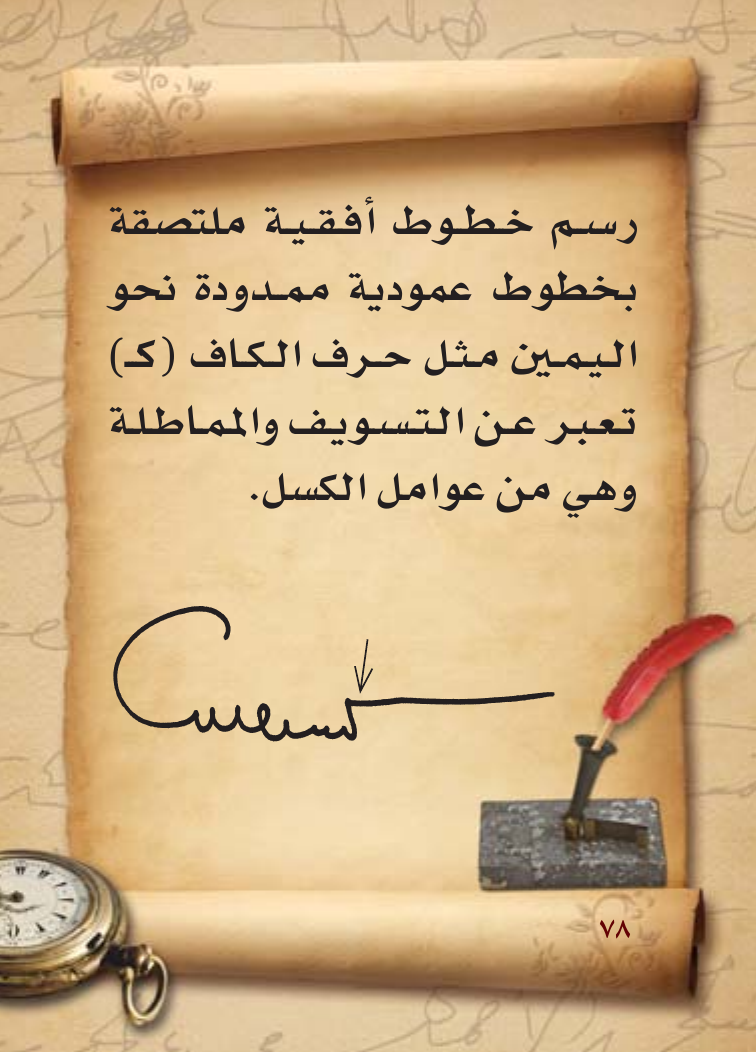 رسم خطوط أفقية ملتصقة
بخطوط عمودية ممدودة نحو
اليمين مثل حرف الكاف (كـ)
تعبر عن التسويف والمماطلة
وهي من عوامل الكسل.
٧٨